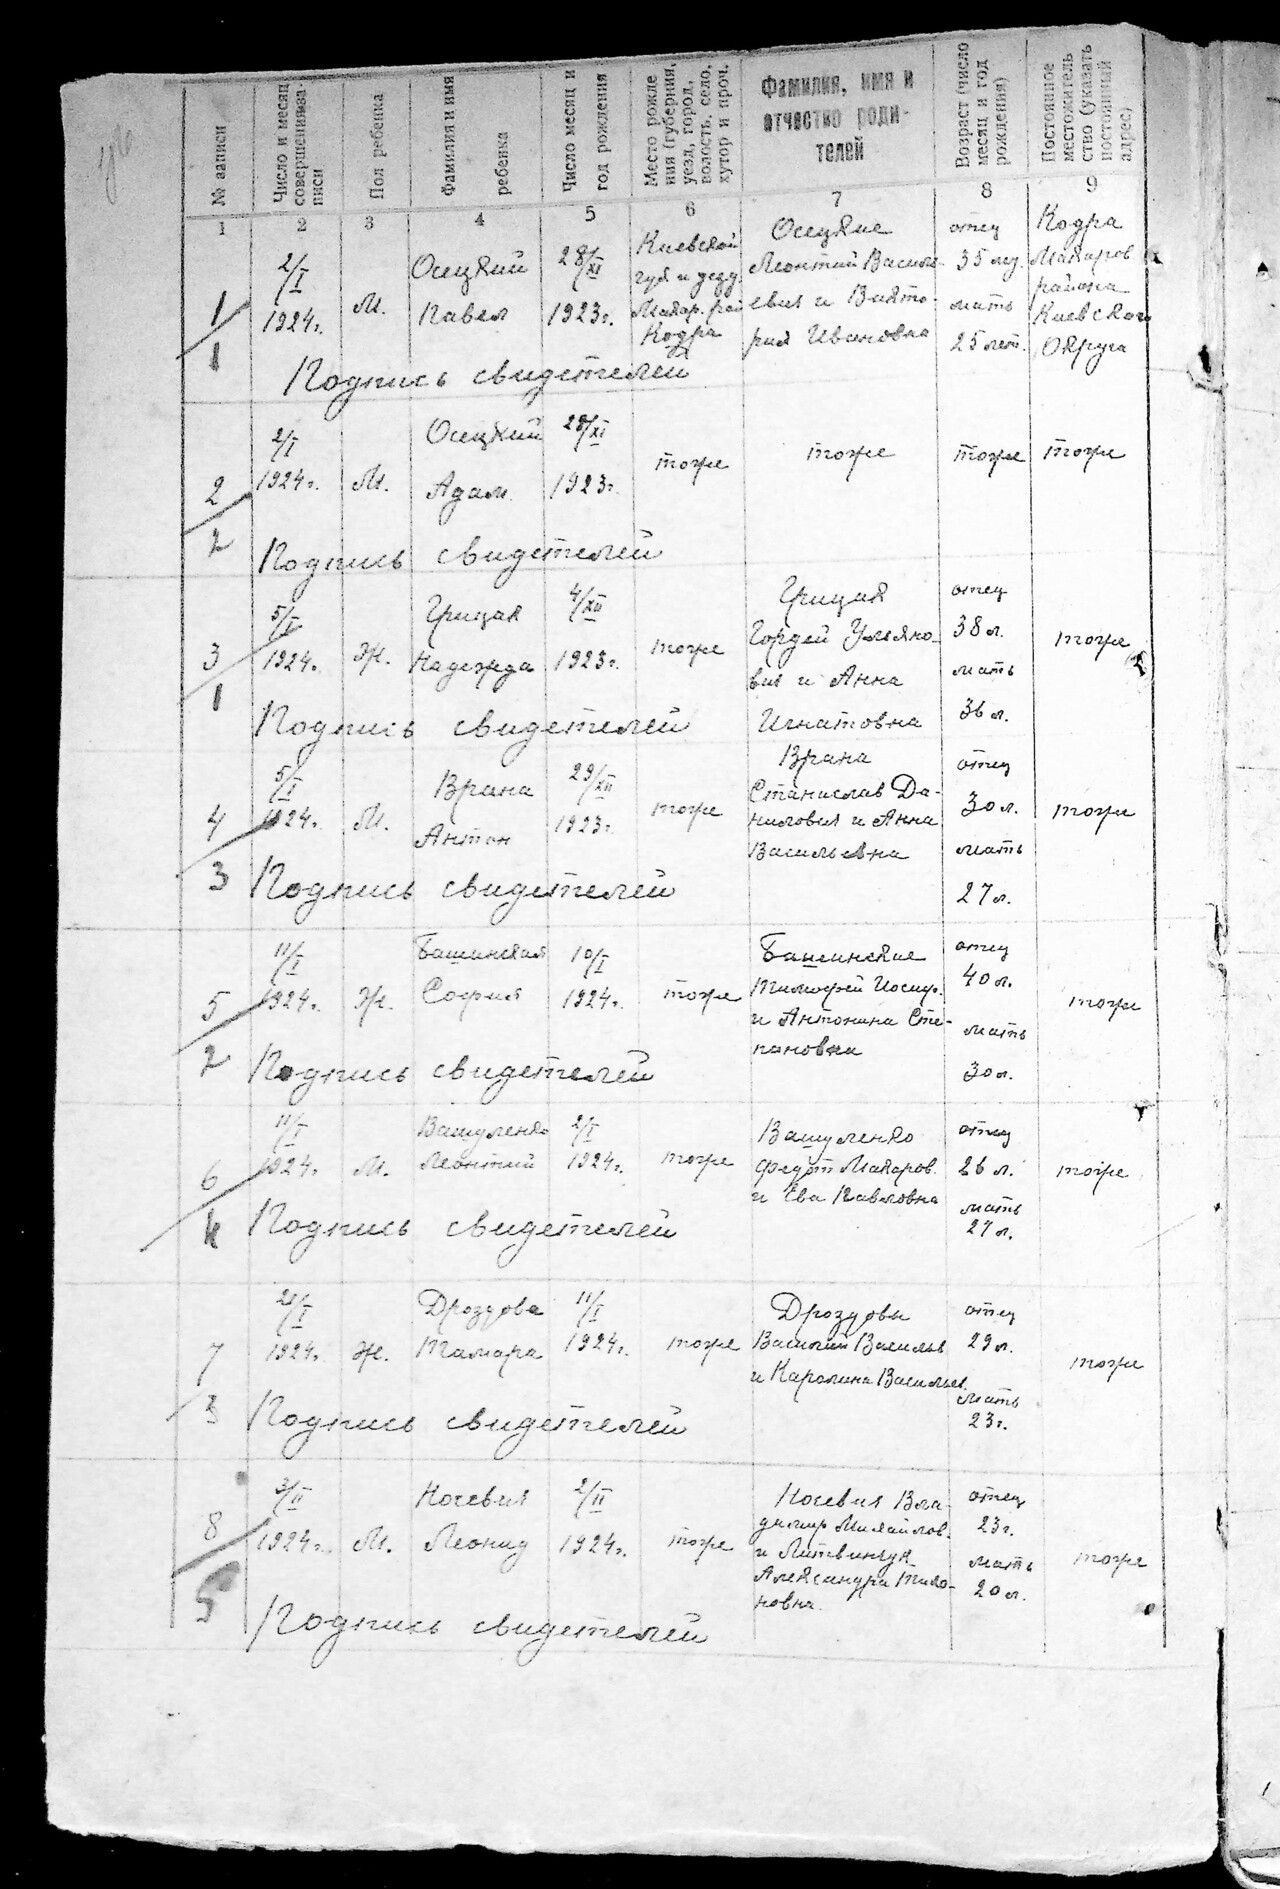 № записи
Число и месяц
совершения за-
писи
Пол ребенка
Фамилия и имя
ребенка
Число месяц и
год рождения
Место рожде
ния (губерния,
уезд, город,
волость, село,
хутор и проч.
Фамилия, имя и
отчество роди-
телей
Возраст (число
месяц и год
рождения)
Постоянное
местожитель
ство (указать
постоянный
адрес)
1 2 3 4 5 6 7 8 9
1/1
2/I
1924г.
М.
Осецкий
Павел
28/XI
1923г.
Киевской
губ и уезд
Макар. рай
Кодра
Осецкие
Леонтий Василь-
евич и Викто-
рия Ивановна
отец
35 лет.
мать
25 лет.
Кодра
Макаров
района
Киевского
Округа
Подпись свидетелей
2/2
2/I
1924г.
М.
Осецкий
Адам
28/XI
1923г.
тоже
тоже
тоже
тоже
Подпись свидетелей
3/1
5/I
1924г.
Ж.
Грицак
Надежда
4/XII
1923г.
тоже
Грицак
Гордей Ульяно-
вич и Анна
Игнатовна
отец
38 л.
мать
36 л.
тоже
Подпись свидетелей
4/3
5/I
1924г.
М.
Врана
Антон
29/XII
1923г.
тоже
Врана
Станислав Да-
нилович и Анна
Васильевна
отец
30 л.
мать
27 л.
тоже
Подпись свидетелей
5/2
11/I
1924г.
Ж.
Башинская
София
10/I
1924г.
тоже
Башинские
Тимофей Иосиф.
и Антонина Сте-
пановна
отец
40 л.
мать
30 л.
тоже
Подпись свидетелей
6/4
11/I
1924г.
М.
Ващуленко
Леонтий
2/I
1924г.
тоже
Ващуленко
Федот Макаров.
и Ева Павловна
отец
26 л.
мать
27 л.
тоже
Подпись свидетелей
7/3
21/I
1924г.
Ж.
Дроздова
Тамара
11/I
1924г.
тоже
Дроздовы
Василий Васильев
и Каролина Васильев.
отец
29 л.
мать
23 г.
тоже
Подпись свидетелей
8/5
3/II
1924г.
М.
Носевич
Леонид
2/II
1924г.
тоже
Носевич Вла-
димир Михайлов.
и Литвинчук
Александра
новна.
отец
23 г.
мать
20 л.
тоже
Подпись свидетелей